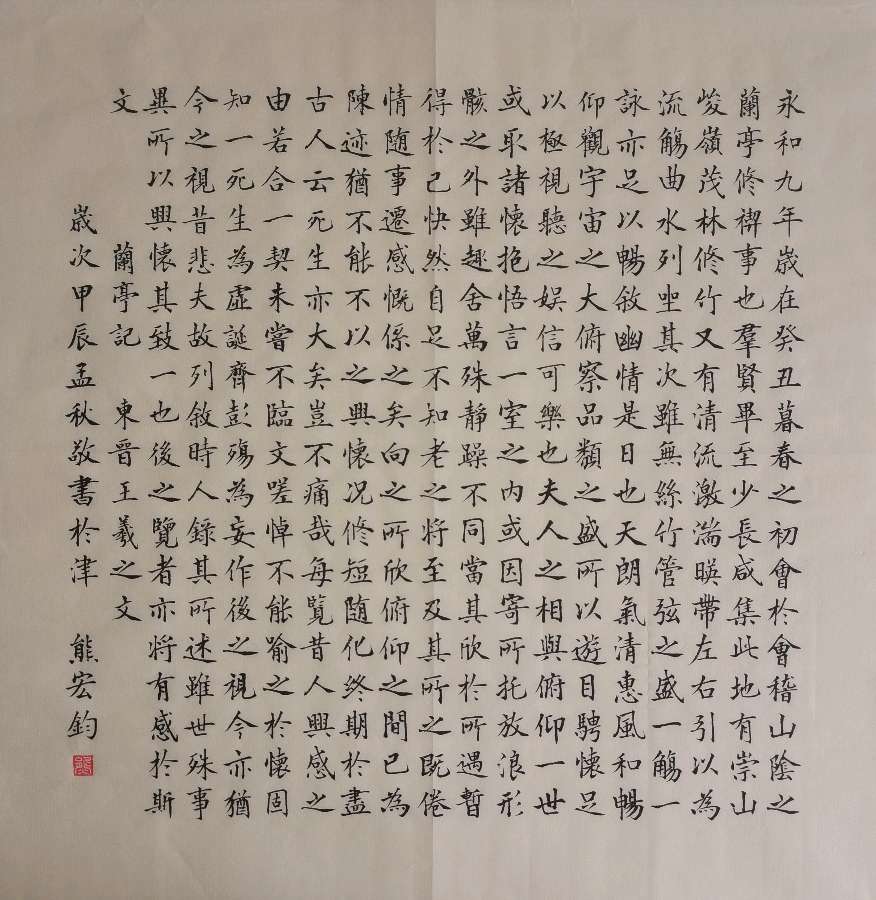 永和九年歲在癸丑暮春之初會於會稽山陰之
蘭亭修禊事也羣賢畢至少長咸集此地有崇山
峻嶺茂林修竹又有清流激湍暎帶左右引以為
流觴曲水列坐其次雖無絲竹管弦之盛一觴一
詠亦足以暢敘幽情是日也天朗氣清惠風和暢
仰觀宇宙之大俯察品類之盛所以遊目騁懷足
以極視聽之娛信可樂也夫人之相與俯仰一世
或取諸懷抱悟言一室之內或因寄所托放浪形
骸之外雖趣舍萬殊靜躁不同當其欣於所遇暫
得於己快然自足不知老之將至及其所之既倦
情隨事遷感慨係之矣向之所欣俯仰之間已為
陳迹猶不能不以之興懷況修短隨化終期於盡
古人云死生亦大矣豈不痛哉每覽昔人興感之
由若合一契未嘗不臨文嗟悼不能喻之於懷固
知一死生為虛誕齊彭殤為妄作後之視今亦猶
今之視昔悲夫故列敘時人錄其所述雖世殊事
異所以興懷其致一也後之覽者亦將有感於斯
文 蘭亭記 東晉王羲之文
歲次甲辰孟秋敬書於津 熊宏鈞